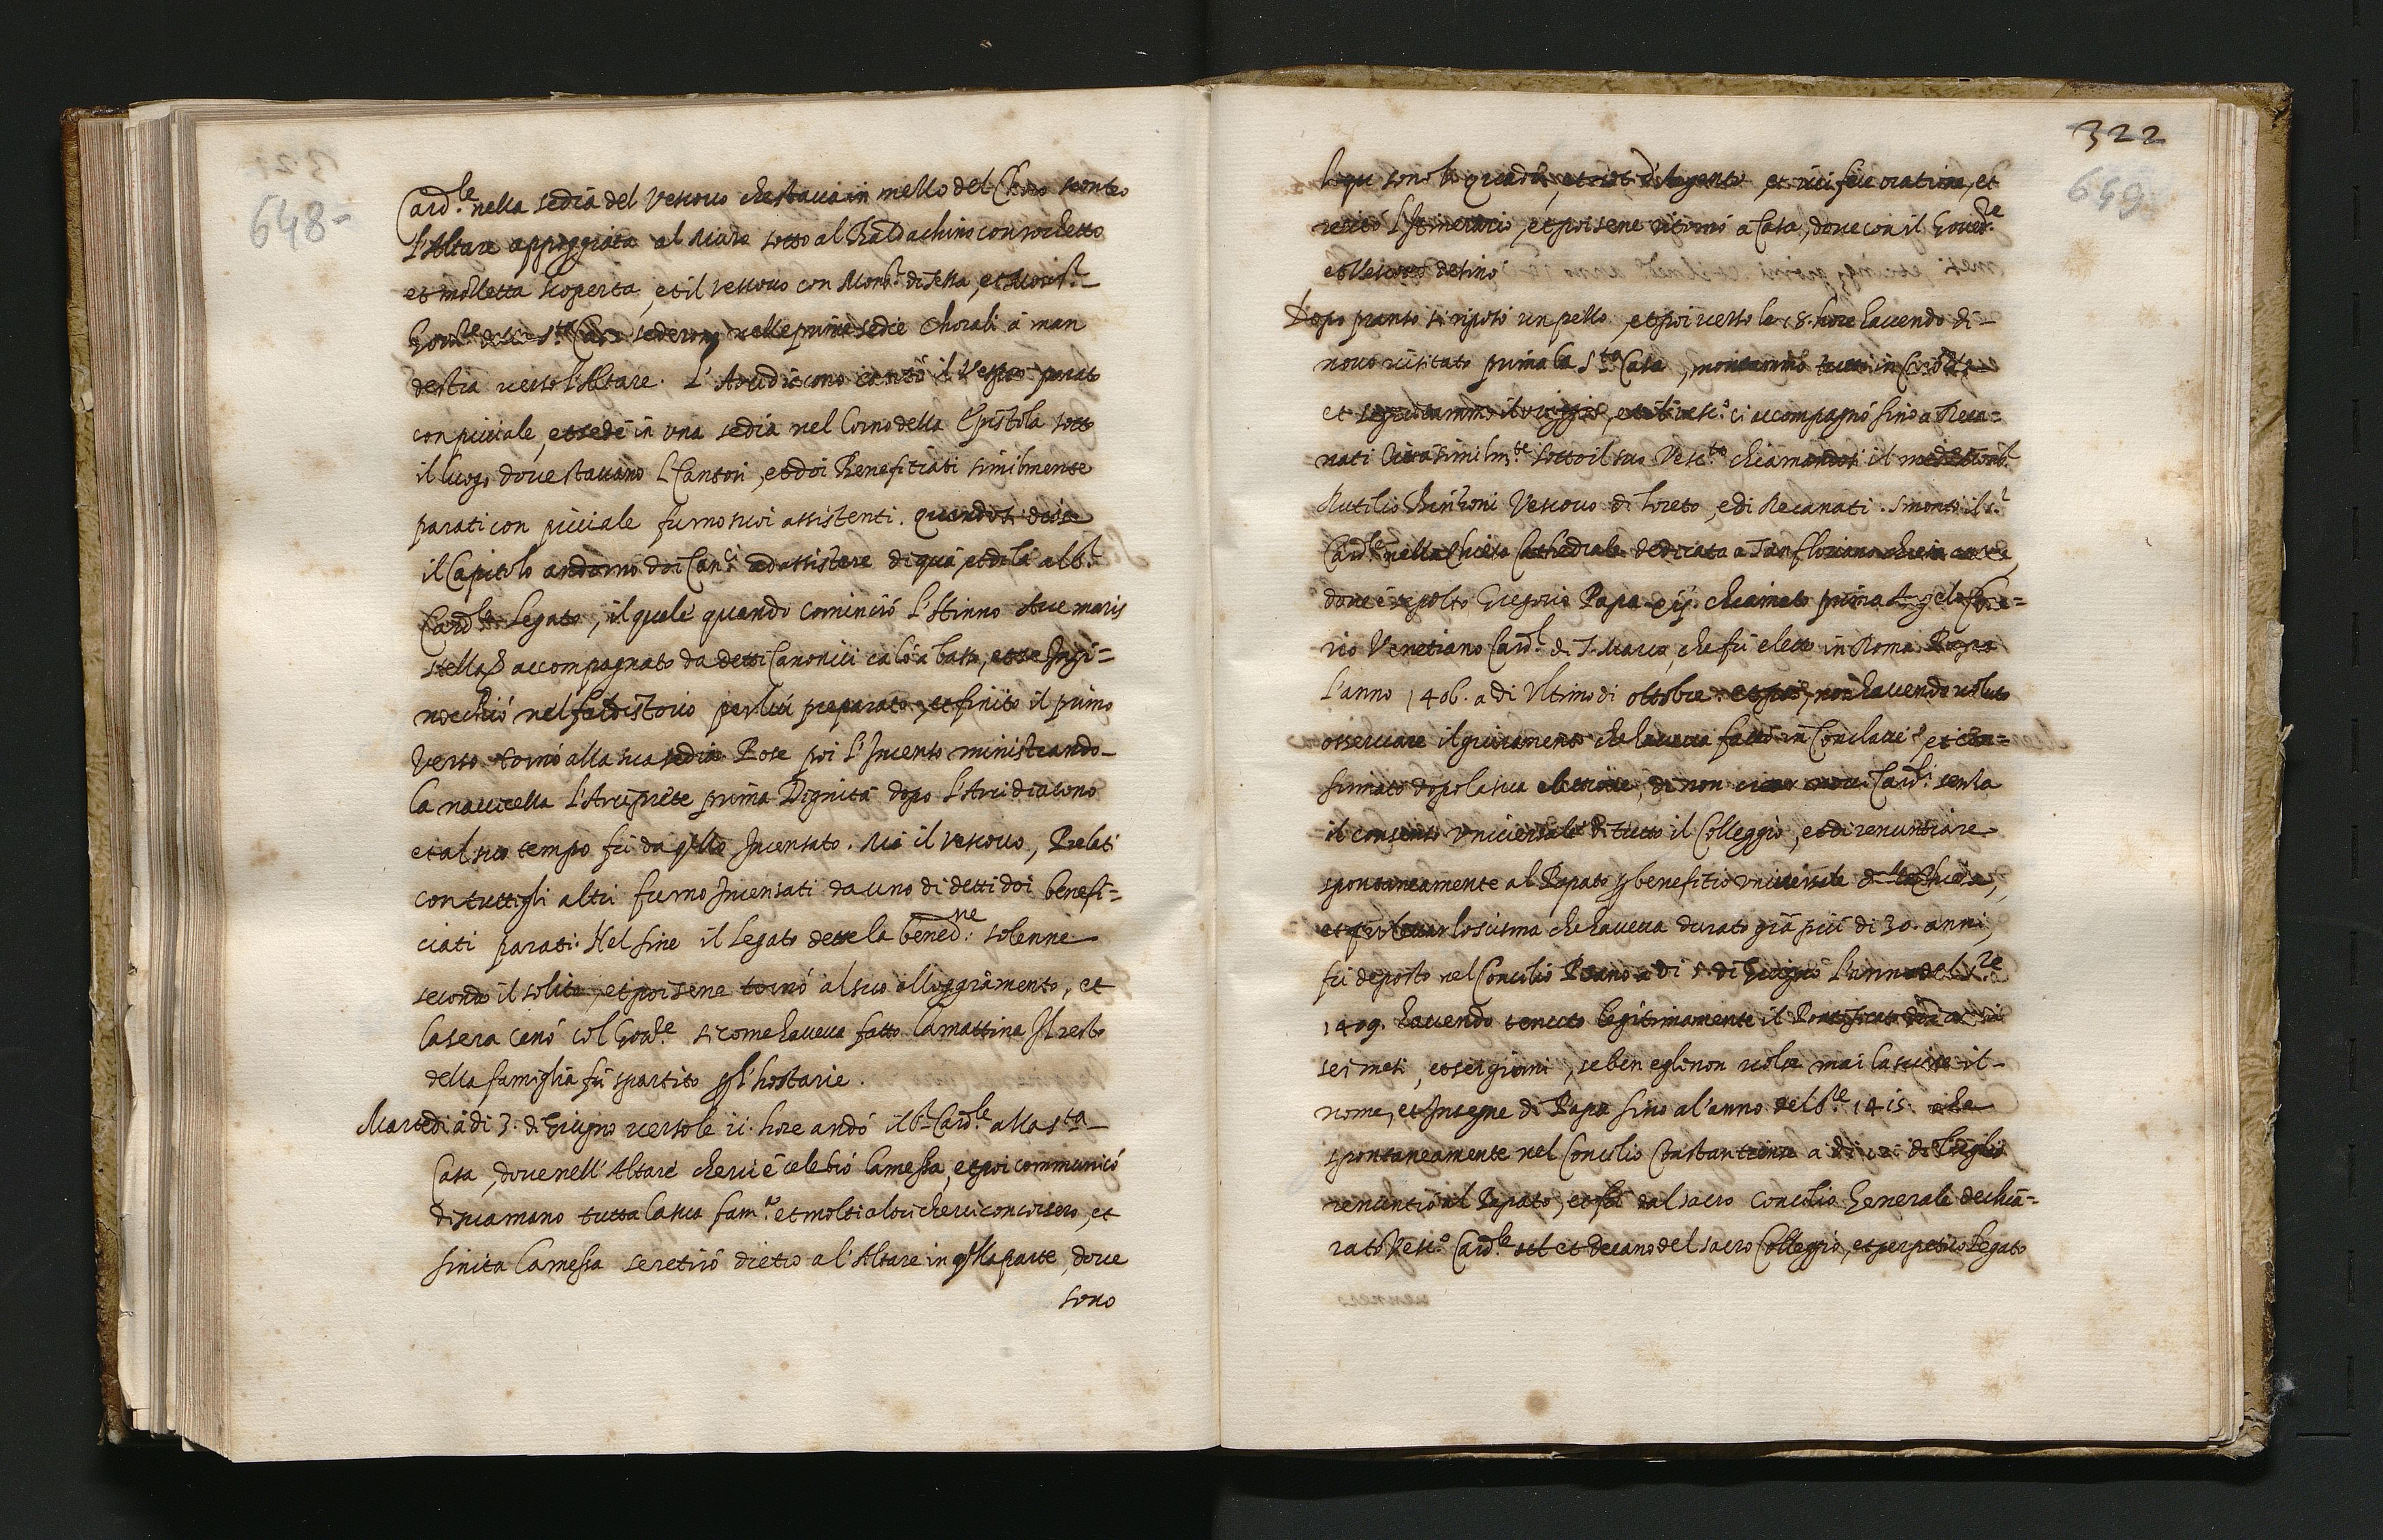 648-
Card.le nella sedia del Vescovo che stava in mezzo del Choro contro
l'Altare appoggiata al muro sotto al Baldachino con rochetto
et mozzetta scoperta, et il vescovo con Mons.r di Sessa, et Mons.r
Gov.re della S.ta Casa sederono nelle prime sedie Chorali à man
destra verso l'Altare. L'Arcidiacono cantò il Vespro parato
con piviale, et sedè in una sedia nel Corno della Epistola sotto
il luogo dove stavano l Cantori, et doi Benefitiati similmente
parati con piviale furno suoi assistenti. quando si disse
il Capitolo andorno doi Can.ci ad assistere di quà, et di là all'Ill.
Card.le Legato, il quale quando cominciò l'Hinno Ave maris
stella, accompagnato da detti Canonici calò à basso, et se Ingi=
nocchiò nel faldistorio per lui preparato, et finito il primo
Verso tornò alla sua sedia. Pose poi l'Incenso ministrando-
la navicella l'Arciprete prima Dignità dopo l'Arcidiacono
et al suo tempo fù da q̃llo Incensato. Mà il vescovo, Prelati
con tutti gli altri furno Incensati da uno di detti doi benefi=
ciati parati. Nel fine il Legato dette la bened.ne solenne
secondo il solito, et poi se ne tornò al suo alloggiamento, et
la sera cenò col Gov.re si come haveva fatto la mattina Il resto
della famiglia fù spartito p̱ l'hostarie.
Martedi à di 3. di Giugno verso le 11. hore andò il S.r Card.le alla S.ta
Casa, dove nell'Altare che vi è celebrò la messa, et poi communicò
di sua mano tutta la sua fam.a et molti altri che vi concorsero, et
finita la messa se retirò dietro a l'Altare in q̃lla parte, dove
sono
322
649
et ivi fece oratione, et
recitò l'Itinerario, et poi se ne ritornò a Casa, dove con il Gover.re
et Vescovo desinò
Dopo pranso si riposò un pezzo, et poi verso le 18. hore havendo di-
novo visitato prima la S.ta Casa, montammo tutti in
et seguitammo il viaggio, et il vesc.o ci accompagnò sino a Reca=
nati Città similm.te sotto il suo Vesc.to chiamandosi il
Rutilio Benzoni Vescovo di Loreto, e di Recanati. Smontò il S.r
Card.le nella Chiesa Cathedrale dedicata a San Floriano
dove è sepolto Gregorio Papa xij. chiamato prima Angelo Cor=
rio Venetiano Card.l di S. Marco, che fù eletto in Roma Papa
l'anno 1406. a di Ultimo di ottobre. et poi, non havendo voluto
osservare il giuramento che haveva fatto in Conclave, et con=
firmato dopo la sua elettione, di non crear novi Card.li senza
il consenso universale di tutto il Colleggio, et di renuntiare
spontaneamente al Papato p̱ benefitio universale della Chiesa,
et p̱ levar lo scisma che haveva durato già più di 30. anni,
fù deposto nel Concilio Pisano a di 5. di Giugno l'anno del S.re
1409. havendo tenuto legitimamente il Pontificato doi anni
sei mesi, et sei giorni, se ben egli non volse mai lasciare il-
nome, et Insegne di Papa sino al'anno del S.re 1415. che
spontaneamente nel Concilio Constantiense a di di Luglio
renuntiò il Papato, et fù dal sacro Concilio Generale dechia=
rato Vesc.o Card.le et Decano del sacro Colleggio, et perpetuo Legato